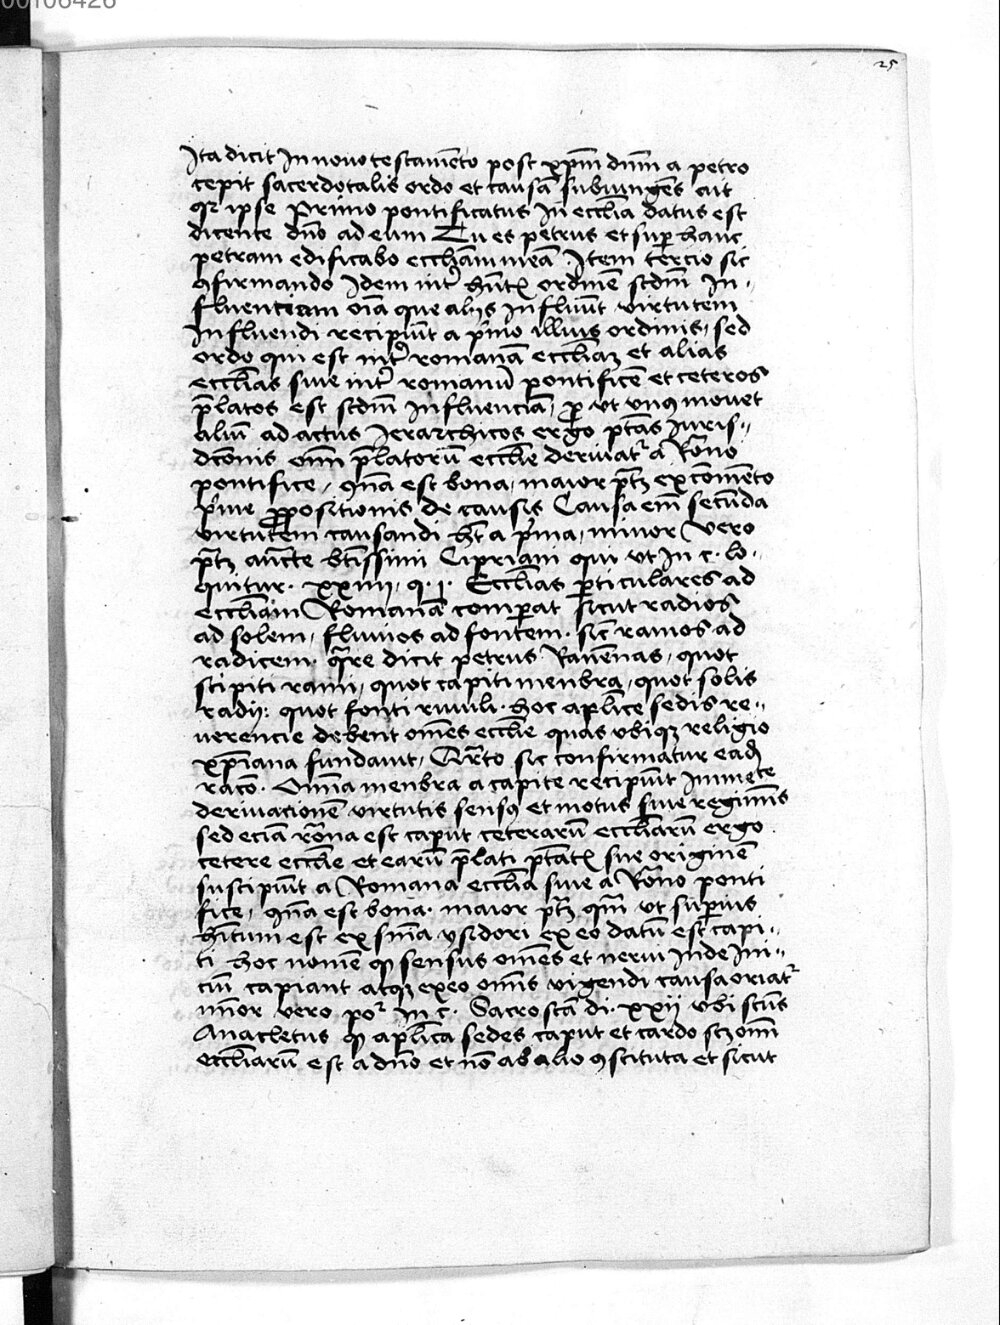 00106426
25
Ita dicit In nouo testamēto post xp̄m dn̄m a petro
cepit sacerdotalis ordo et causā subiungēs ait
qr ipse Primo pontificatus In eccl̄ia datus est
dicente dn̄o ad eum Tu es petrus et sup̄ hanc
petram edificabo eccl̄iam meā Item tercio sic
ꝯfirmando Idem int̄ hn̄t ordinē scdm̄ In-
fluenciam oīa que alijs Influūt virtutem
Influendi recipiūt a p̄mo illius ordinis, sed
ordo qui est int̄ romanā eccl̄iaꝫ et alias
eccl̄ias siue int̄ romanū pontificē et ceteros
p̄latos est scdm̄ Influenciā, ꝓ vt vnꝰ mouet
aliū ad actus Ierarchicos ergo ptās Iuris-
dc̄onis om̄i p̄latorū eccl̄ie deriuat᷑ a Ro᷑no
pontifice, ꝯn̄a est bona, maior ptꝫ ex cōmēto
p̄me ꝓpositionis de causis Causa em̄ secūda
virtutem causandi ht̄ a p̄ma, minor vero
ptꝫ auc̄te btīssimi Cipriani qui vt In c. lo-
quitur. xxiiij. q. j. Eccl̄ias p̄ticulares ad
eccl̄iam Romanā comp̄at sicut radios
ad solem, fluuios ad fontem. sic ramos ad
radicem. qr̄e dicit petrus Rauēnas, quot
stipiti rami, quot capiti menbra, quot solis
radij: quot fonti riuuli. hoc apl̄ice sedis re-
uerencie debent om̄es eccl̄ie quas vbiqꝫ religio
xp̄iana fundauit, Qr̄to sic confirmatur eadꝫ
rac̄o. Om̄ia menbra a capite recipiūt Immēte
deriuacionē virtutis sensꝰ et motus siue regim̄is
sed ecia ro᷑na est caput ceterarū eccl̄iarū ergo
cetere eccl̄ie et earū p̄lati ptat̄ sue originē
suscipiūt a Romana eccl̄ia siue a Ro᷑no ponti
fice, ꝯn̄a est bona. maior ptꝫ qm̄ vt sup̄ius
hitum est ex sn̄ia ysidori ex eo datū est capi-
ti hoc nomē ꝙ sensus om̄es et nerui Inde Ini-
ciū capiant atqꝫ ex eo om̄is vigendi causa oriat᷑
mīor vero po᷑ In c. Sacrosctā di. xxij vbi sctūs
Anacletus ꝙ apl̄ica sedes caput et cardo sc̄ om̄i
eccl̄iarū est a dn̄o et nō ab alio ꝯstituta et sicut